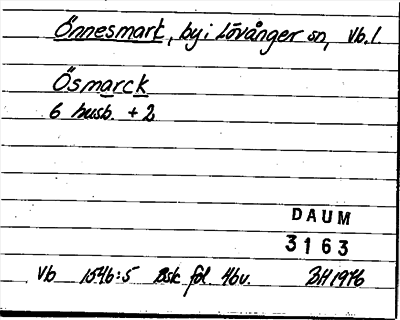 Önnesmark, by i Lövånger sn, Vb.l.
Ösmarck
6 husb. + 2
DAUM
3163
Vb 1546:5 Bsk fol. 46v. BH 1976